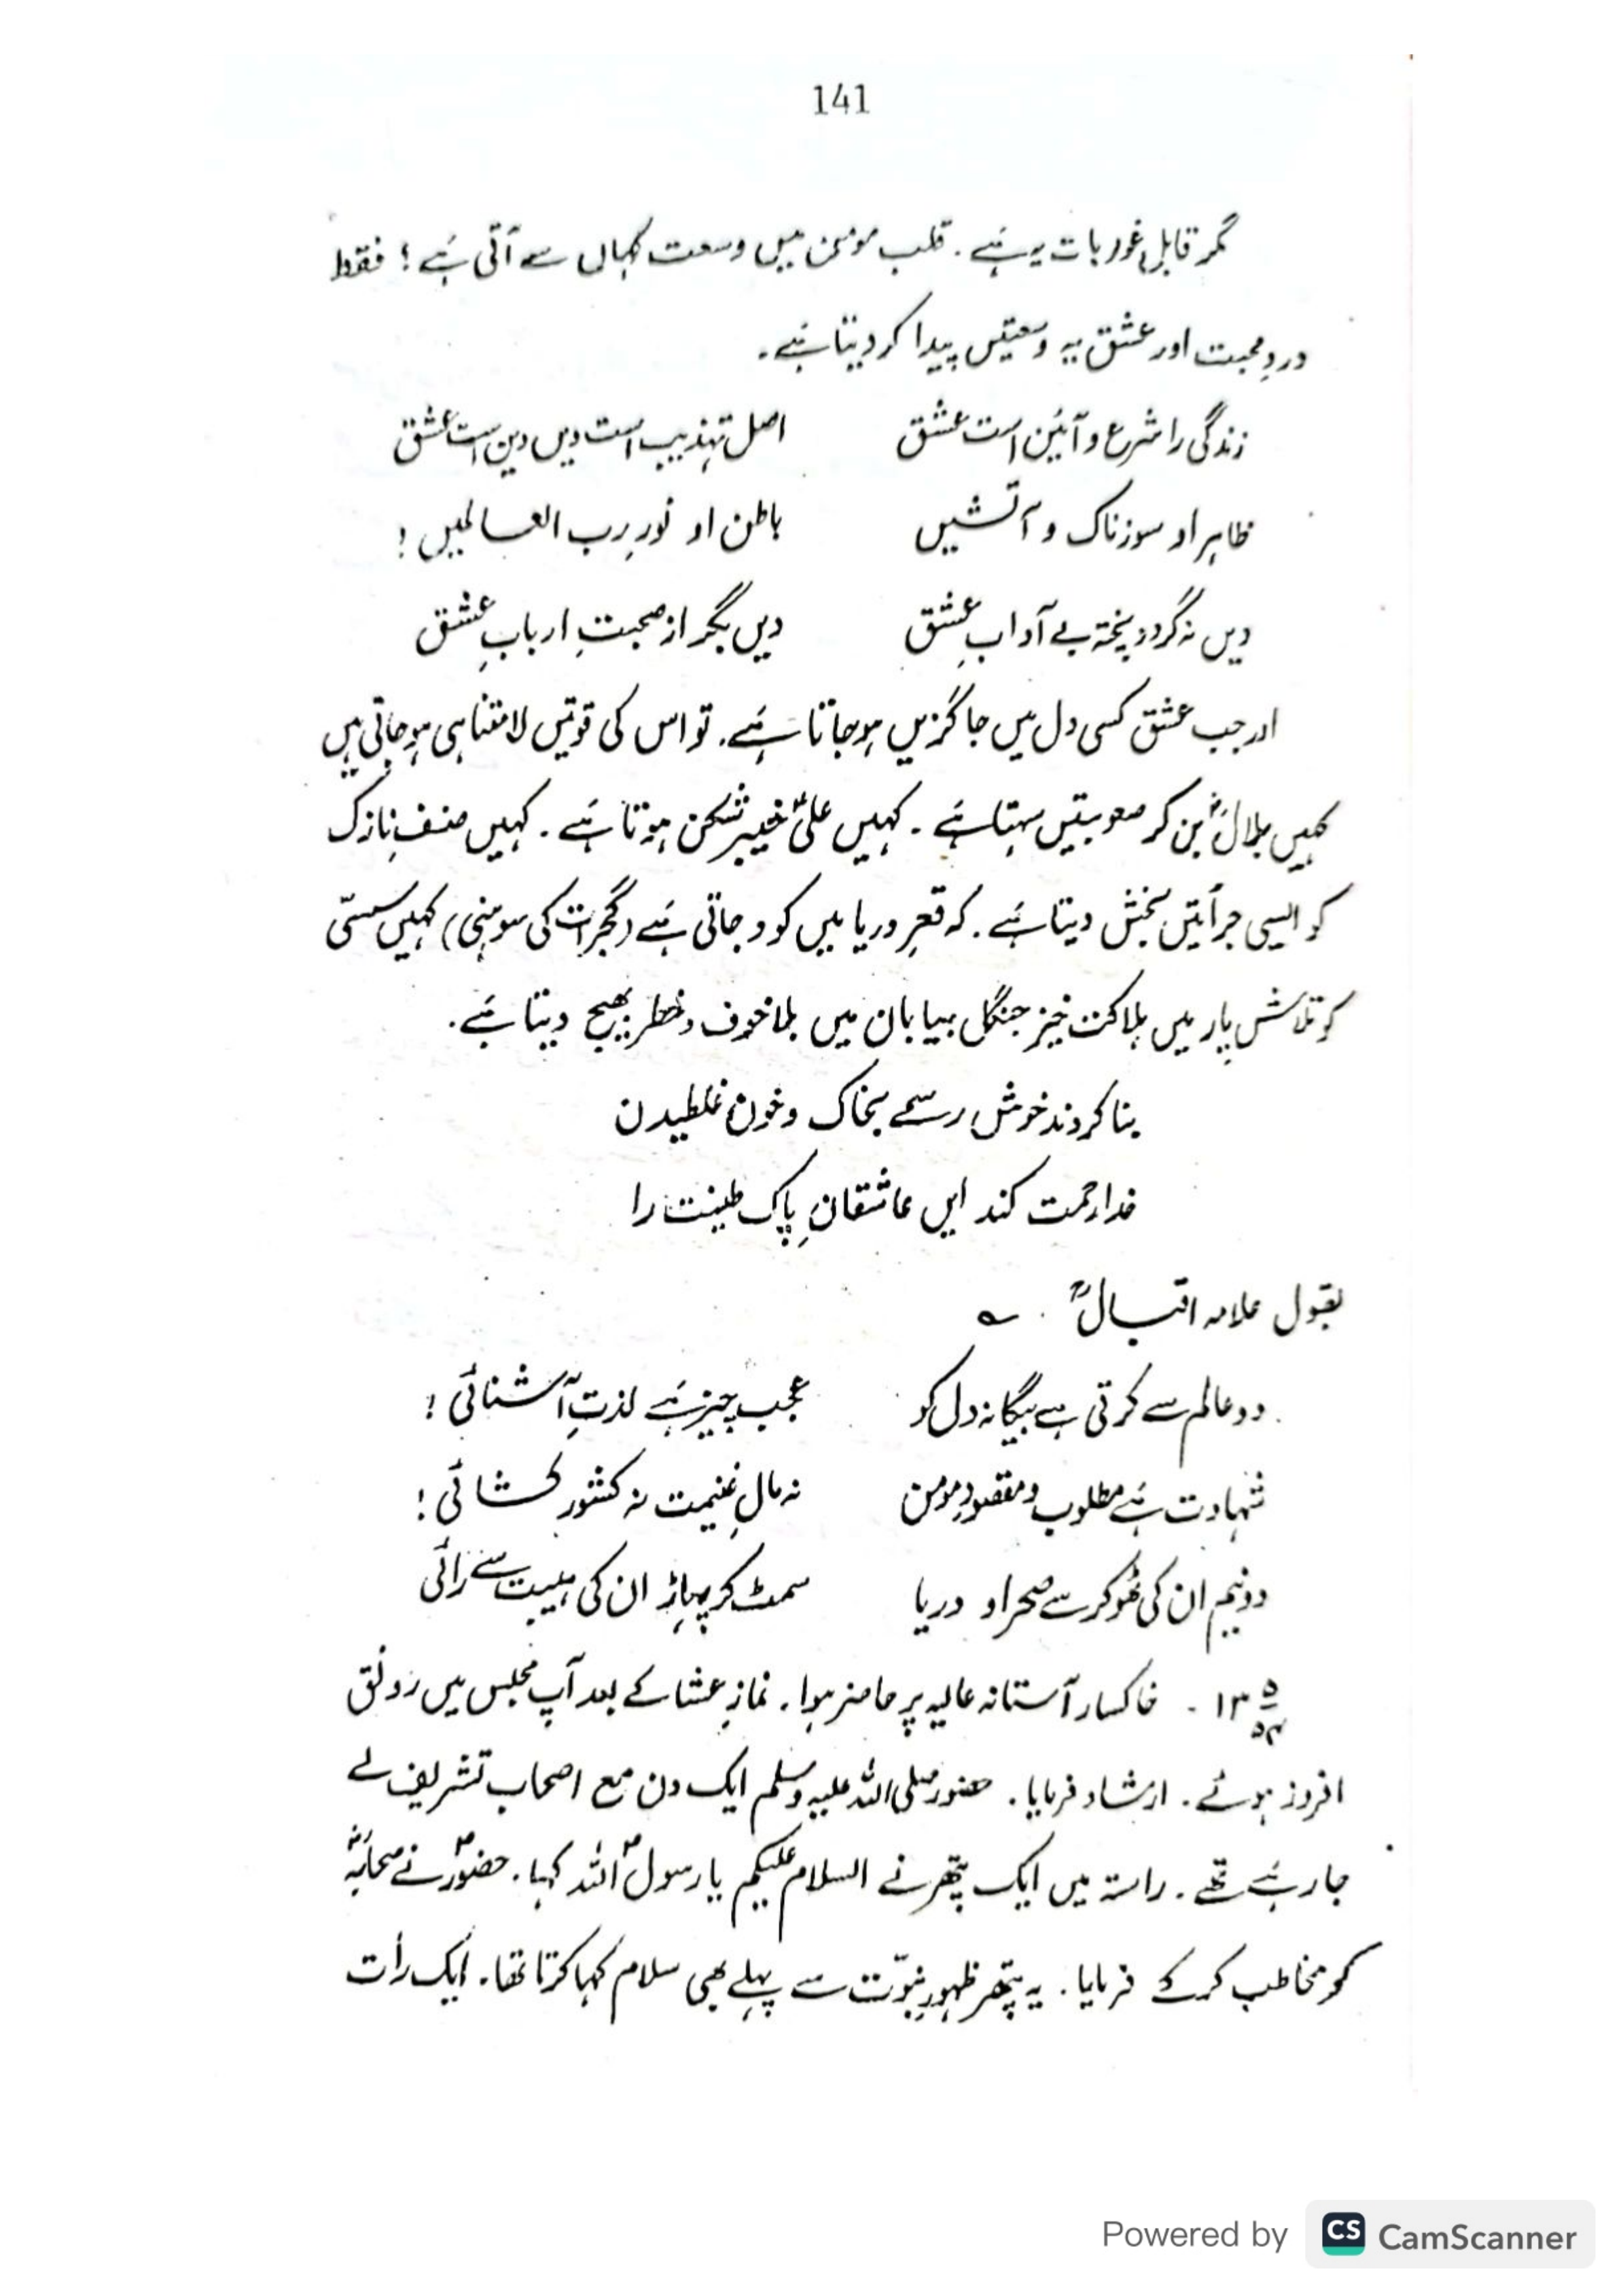 141
مگر قابلِ غور بات یہ ہَے ۔ قلب مومن میں وسعت کہاں سے آتی ہَے ؟ فقط
دردِ محبت اور عشق یہ وسعتیں پیدا کر دیتا ہَے ۔
زندگی را شرع و آئین است عشق اصل تہذیب است دیں دین است عشق
ظاہر او سوزناک و آتشیں باطن او نورِ رب العالمیں !
دیں نہ گردد پختہ بے آدابِ عشق دیں بگیر از صحبتِ اربابِ عشق
اور جب عشق کسی دل میں جا گزیں ہو جاتا ہَے ۔ تو اس کی قوتیں لا متناہی ہو جاتی ہیں
کہیں بلالؓ بن کر صعوبتیں سہتا ہَے ۔ کہیں علیؓ خیبر شکن ہوتا ہَے ۔ کہیں صنفِ نازک
کو ایسی جرأتیں بخش دیتا ہَے ۔ کہ قعرِ دریا میں کود جاتی ہَے (گجرات کی سوہنی) کہیں سسّی
کو تلاشِ یار میں ہلاکت خیز جنگل بیابان میں بلا خوف و خطر بھیج دیتا ہَے ۔
بنا کردند خوش رسمے بخاک و خون غلطیدن
خدا رحمت کند ایں عاشقانِ پاک طینت را
بقول علامہ اقبالؒ ۔ ؎
دو عالم سے کرتی ہے بیگانہ دل کو عجب چیز ہَے لذتِ آشنائی !
شہادت ہَے مطلوب و مقصودِ مومن نہ مالِ غنیمت نہ کشور کشائی !
دو نیم ان کی ٹھوکر سے صحرا و دریا سمٹ کر پہاڑ ان کی ہیبت سے رائی
۱۳ ۵/۵۴ ۔ خاکسار آستانہ عالیہ پر حاضر ہوا ۔ نمازِ عشا کے بعد آپ مجلس میں رونق
افروز ہوئے ۔ ارشاد فرمایا ۔ حضور صلی اللہ علیہ وسلم ایک دن مع اصحاب تشریف لے
جا رہَے تھے ۔ راستہ میں ایک پتھر نے السلام علیکم یا رسولؐ اللہ کہا ۔ حضورؐ نے صحابہؓ
کو مخاطب کر کے فرمایا ۔ یہ پتھر ظہورِ نبوّت سے پہلے بھی سلام کہا کرتا تھا ۔ ایک رات
Powered by CS CamScanner